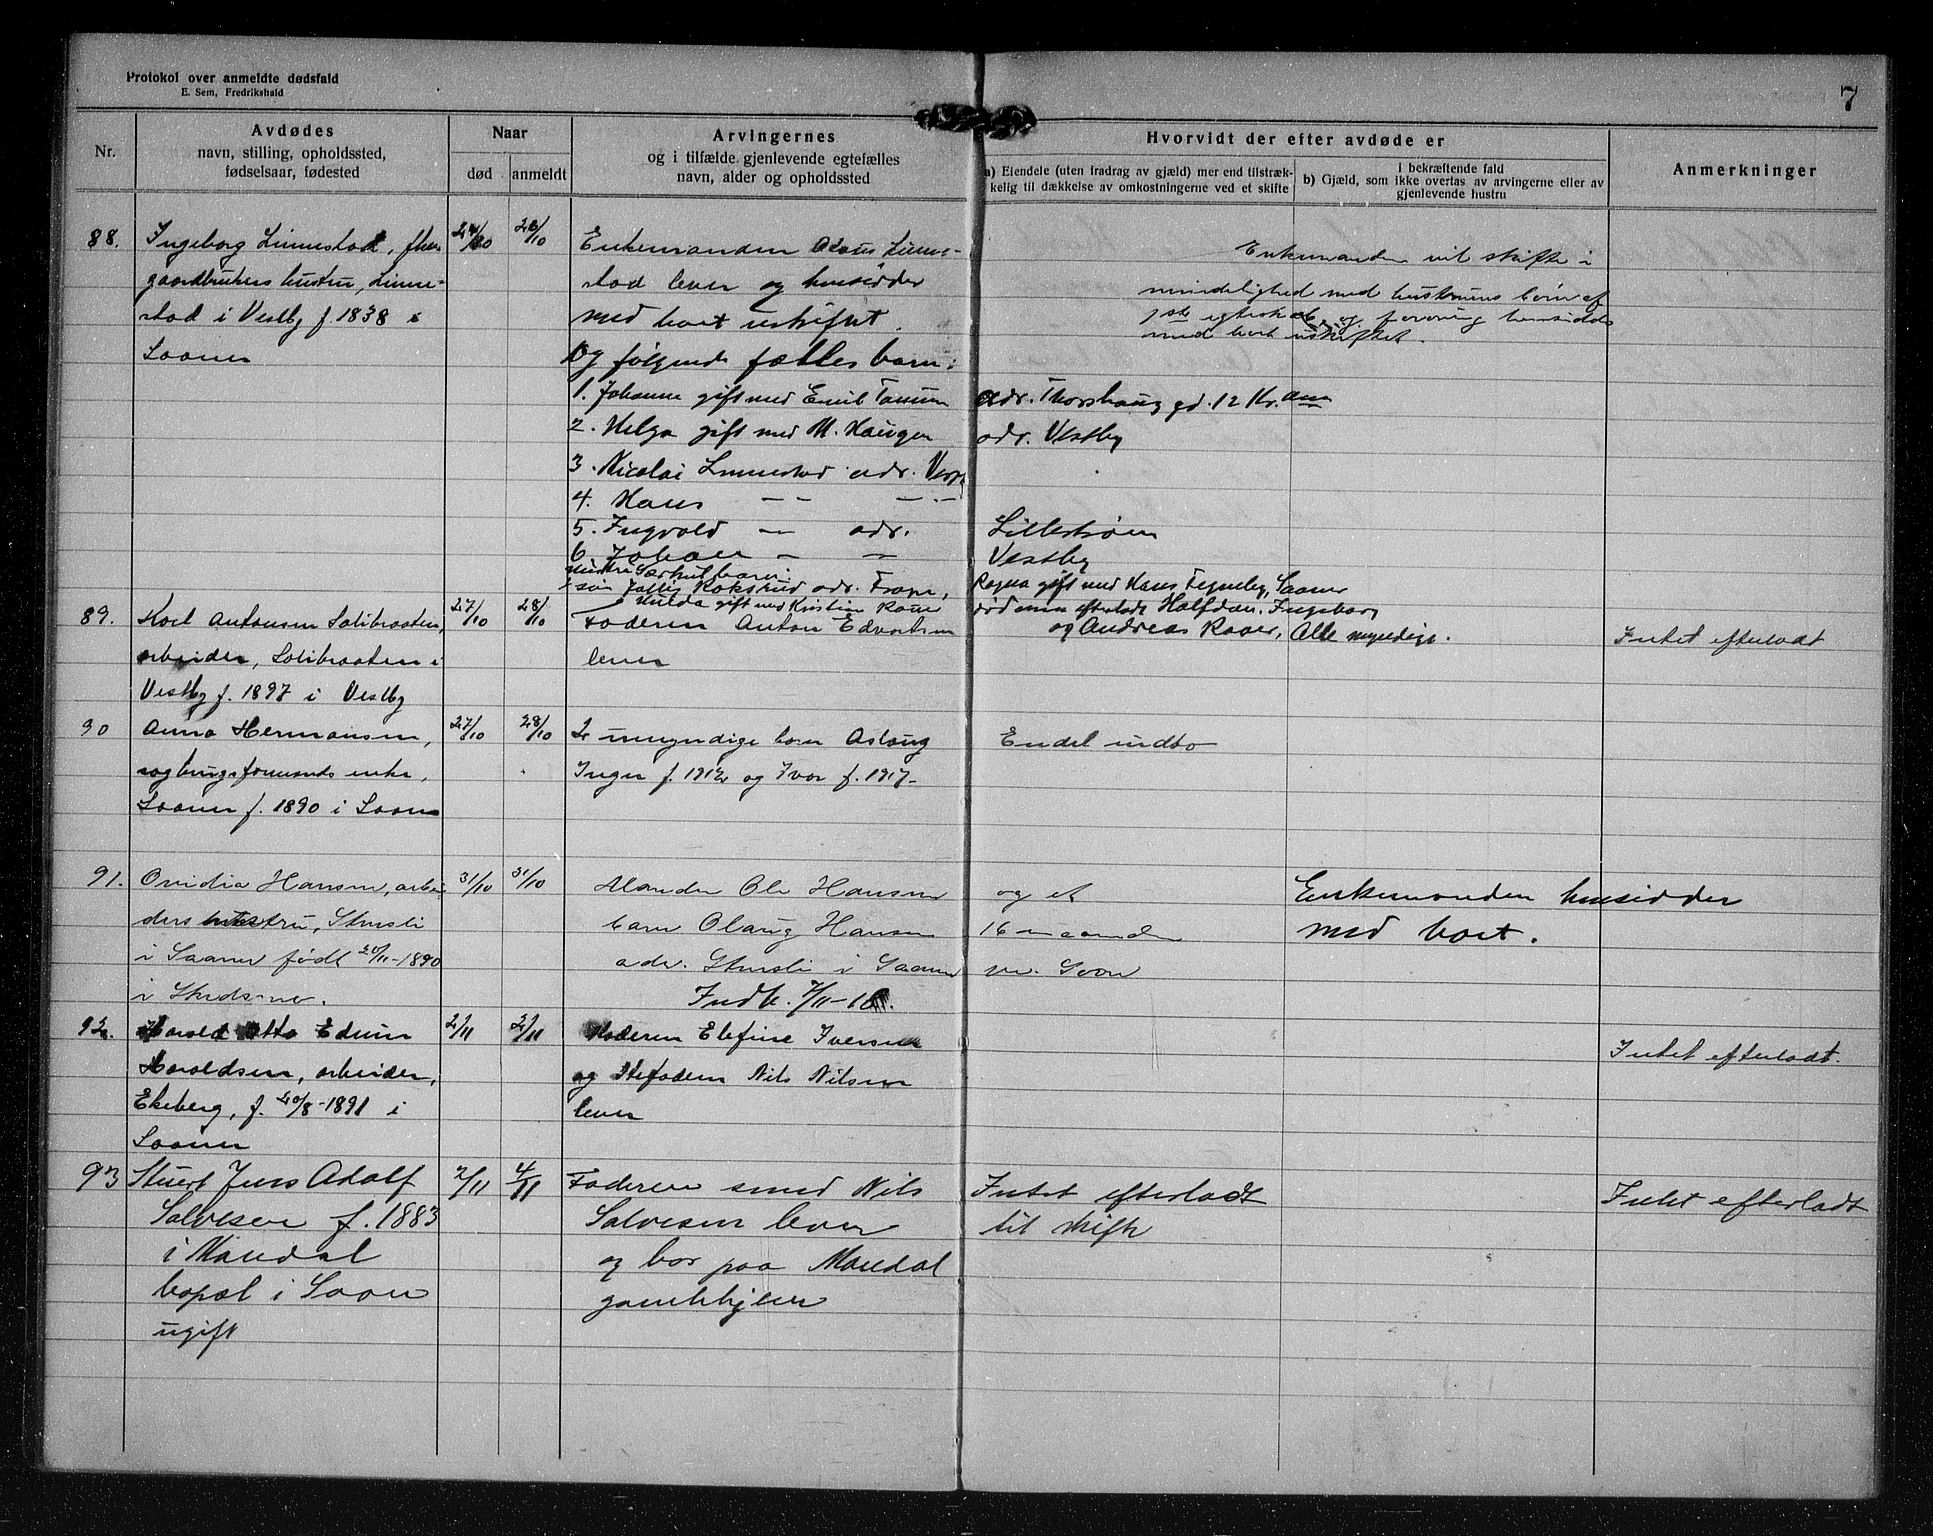 Protokol over anmeldte dødsfald
E. Sem, Fredrikshald
7
Nr.
Avdødes
navn, stilling, opholdssted,
fødselsaar, fødested
Naar
død
anmeldt
Arvingernes
og i tilfælde gjenlevende egtefælles
navn, alder og opholdssted
Hvorvidt der efter avdøde er
a) Eiendele (uten fradrag av gjæld) mer end tilstræk-
kelig til dækkelse av omkostningerne ved et skifte
i bekræftende fald
b) Gjæld, som ikke overtas av arvingerne eller av
gjenlevende hustru
Anmerkninger
88.
Ingeborg Linnestad, fhv.
gaardbrukers hustru, Linne-
stad i Vestby f. 1838 i
Saaner
24/10
26/10
Enkemanden Olaus Linne-
stad lever og hensidder
med boet uskiftet.
Og følgende fælles barn:
1. Johanne gift med Emil Tanum
2. Helga gift med M. Haugen
3. Nicolai Linnestad adr. Vestby
4. Hans — — — " —
5. Ingvald — adr.
6. Johan — —
Enkemanden vil skifte i
mindelighed med hustruens børn af
1ste egteskab, og forøvrig hensidde
med boet uskiftet.
adr. Thorshaug gd. 12 Kr.ania
adr. Vestby
Lillestrøm
Vestby
hustru Særkulbarn:
søn Rokstrud adr. Frogn,
Hulda gift med Kristian Raaer
Ragna gift med Hans Tegneby, Saaner
død men efterladt Halfdan, Ingeborg
og Andreas Raaer, Alle myndige.
89.
Karl Antonsen Solibraaten,
arbeider, Solibraaten i
Vestby f. 1897 i Vestby
27/10
28/10
Faderen Anton Edvartsen
lever
Intet efterladt
90
Anna Hermansen,
sogbrugsformands enke,
Saaner f. 1890 i Saaner
27/10
28/10
2 umyndige barn Aslaug
Inger f. 1912 og Ivar f. 1917-
Endel indbo
91.
Ovidia Hansen, arbei-
ders hustru, Stusli
i Saaner født 20/11-1890
i Skedsmo.
31/10
31/10
Manden Ole Hansen
barn Olaug Hansen
adr. Stusli i Saaner
Indb. 7/11-18.
og et
16 maaneder
pr. Soon
Enkemanden hensidder
med boet.
92.
Harald Otto Edvin
Haraldsen, arbeider,
Ekeberg, f. 20/8-1891 i
Saaner
2/11
2/11
Moderen Elefine Iversen
og Stefaderen Nils Nilsen
lever
Intet efterladt.
93
Stuert Jens Adolf
Salvesen f. 1883
i Mandal
bopæl i Soon
ugift
2/11
4/11
Faderen smed Nils
Salvesen lever
og bor paa Mandal
gamlehjem
Intet efterladt
til skifte
Intet efterladt